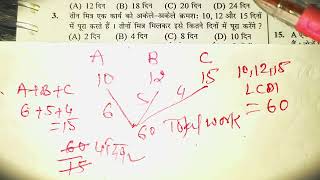 (A) 12 दिन (B) 18 दिन (C) 20 दिन (D) 24 दिन
3. तीन मित्र एक कार्य को अकेले-अकेले क्रमशः 10, 12 और 15 दिनों
में पूरा करते हैं । तीनों मित्र मिलकर इसे कितने दिनों में पूरा करेंगे ?
(A) 2 दिन (B) 4 दिन (C) 8 दिन (D) 10 दिन
15.
A B C
10 12 15
10, 12, 15
LCM
= 60
A+B+C
6+5+4
=15
6 5 4
60 Total work
60
15